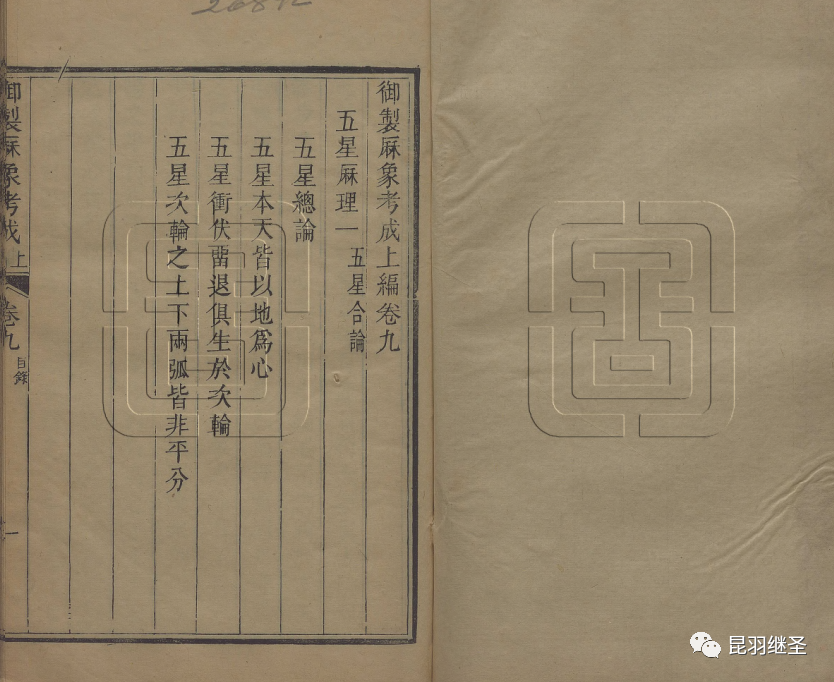 御製厤象考成上編卷九
五星厤理一 五星合論
五星總論
五星本天皆以地爲心
五星衝伏畱退俱生於次輪
五星次輪之上下兩弧皆非平分
御製厤象考成 上 卷九 目錄 一
昆羽继圣